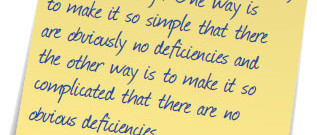 One way is
to make it so simple that there
are obviously no deficiencies and
the other way is to make it so
complicated that there are no
obvious deficiencies